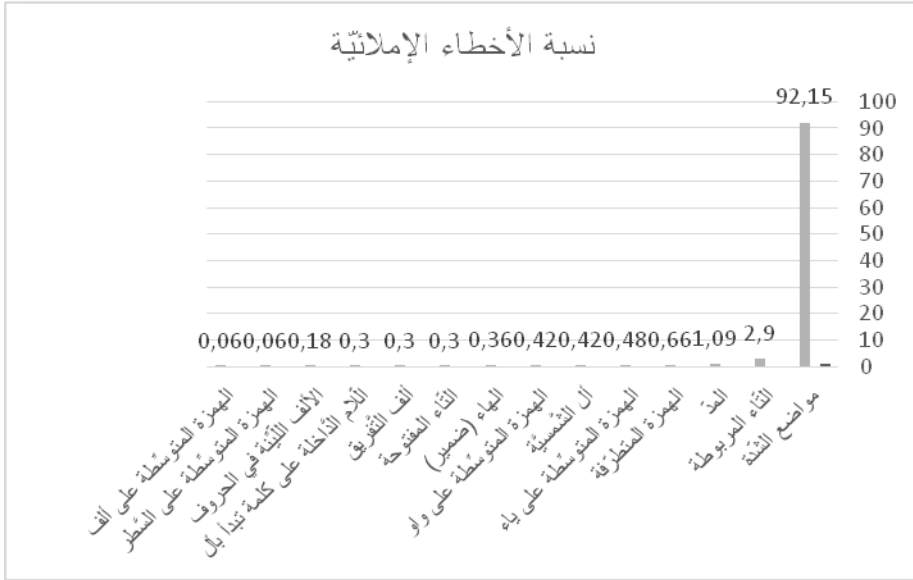 نسبة الأخطاء الإملائيّة
92,15
2,9
1,09
0,66
0,48
0,42
0,42
0,36
0,3
0,3
0,3
0,18
0,06
0,06
100
90
80
70
60
50
40
30
20
10
0
مواضع الشّدّة
التّاء المربوطة
المدّ
الهمزة المتطرّفة
الهمزة المتوسّطة على ياء
أل الشّمسيّة
الهمزة المتوسّطة على واو
الهاء (ضمير)
التّاء المفتوحة
ألف التّفريق
اللّام الدّاخلة على كلمة تبدأ بأل
الألف اللّيّنة في الحروف
الهمزة المتوسّطة على السّطر
الهمزة المتوسّطة على ألف